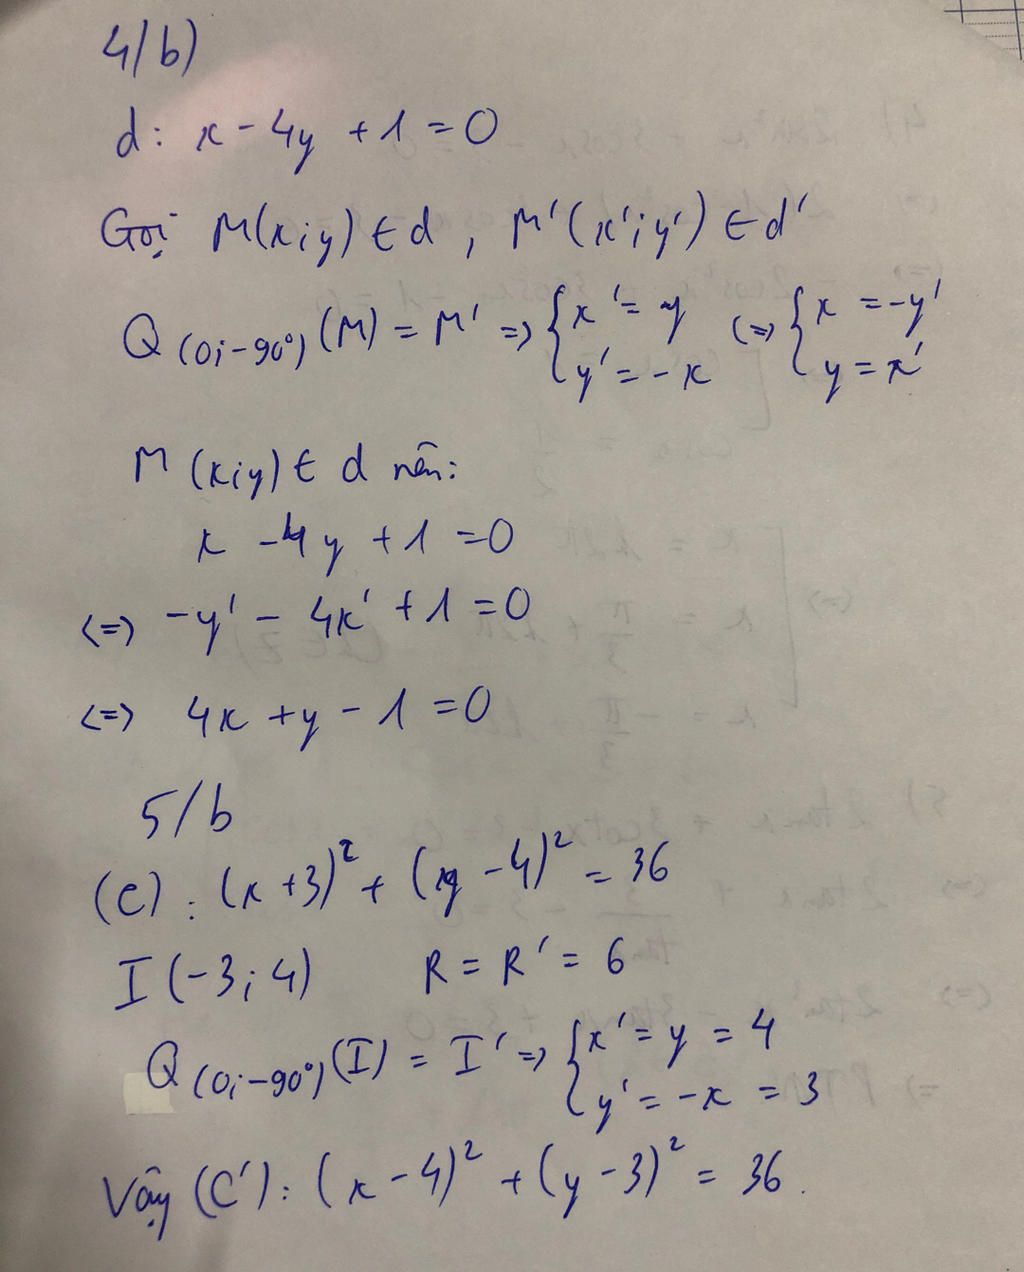 4/b)
d: x - 4y + 1 = 0
Gọi M(x;y) ∈ d, M'(x';y') ∈ d'
Q(O;-90°)(M) = M' => { x' = y (=> { x = -y'
y' = -x y = x'
M(x;y) ∈ d nên:
x - 4y + 1 = 0
<=> -y' - 4x' + 1 = 0
<=> 4x + y - 1 = 0
5/b
(C): (x+3)² + (y-4)² = 36
I(-3;4) R = R' = 6
Q(O;-90°)(I) = I' => { x' = y = 4
y' = -x = 3
Vậy (C'): (x-4)² + (y-3)² = 36.